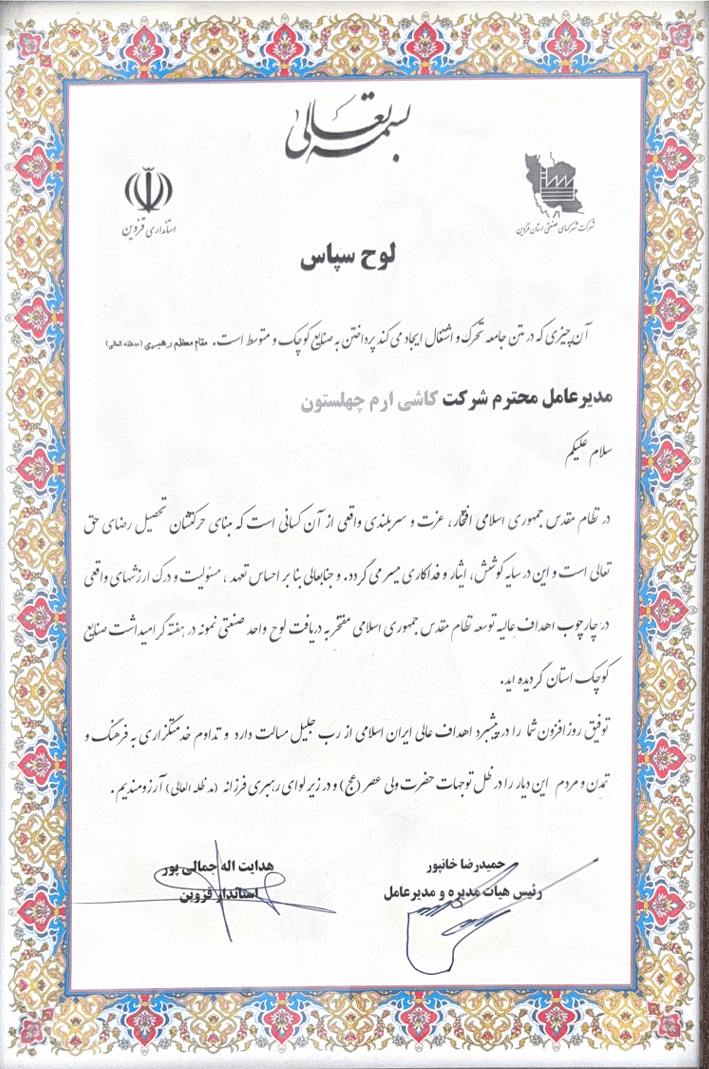 بسمه تعالی
استانداری قزوین
شرکت شهرکهای صنعتی استان قزوین
لوح سپاس
آن چیزی که در متن جامعه تحرک و اشتغال ایجاد می کند پرداختن به صنایع کوچک و متوسط است. مقام معظم رهبری (مدظله العالی)
مدیرعامل محترم شرکت کاشی ارم چهلستون
سلام علیکم
در نظام مقدس جمهوری اسلامی افتخار، عزت و سربلندی واقعی از آن کسانی است که مبنای حرکتشان تحصیل رضای حق
تعالی است و این در سایه کوشش، ایثار و فداکاری میسر می گردد. و جنابعالی بنا بر احساس تعهد، مسئولیت و درک ارزشهای واقعی
در چارچوب اهداف عالیه توسعه نظام مقدس جمهوری اسلامی مفتخر به دریافت لوح واحد صنعتی نمونه در هفته گرامیداشت صنایع
کوچک استان گردیده اید.
توفیق روزافزون شما را در پیشبرد اهداف عالی ایران اسلامی از رب جلیل مسالت دارد و تداوم خدمتگزاری به فرهنگ و
تمدن و مردم این دیار را در ظل توجهات حضرت ولی عصر (عج) و در زیر لوای رهبری فرزانه (مد ظله العالی) آرزومندیم.
حمیدرضا خانپور
رئیس هیات مدیره و مدیرعامل
هدایت اله جمالی پور
استاندار قزوین